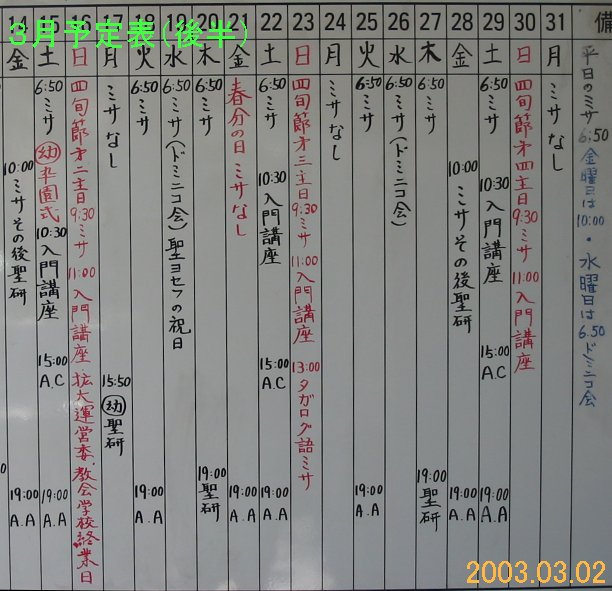 3月予定表(後半)
14
金
10:00 ミサその後聖研
19:00 A.A
15
土
6:50 ミサ
幼 卒園式
10:30 入門講座
15:00 A.C
19:00 A.A
16
日
四旬節才二主日 9:30 ミサ 11:00 入門講座 拡大運営委、教会学校終業日
17
月
ミサなし
15:50 幼 聖研
18
火
6:50 ミサ
19:00 A.A
19
水
6:50 ミサ(ドミニコ会) 聖ヨセフの祝日
20
木
6:50 ミサ
19:00 聖研
21
金
春分の日 ミサなし
19:00 A.A
22
土
6:50 ミサ
10:30 入門講座
15:00 A.C
19:00 A.A
23
日
四旬節才三主日 9:30 ミサ 11:00 入門講座 13:00 タガログ語ミサ
24
月
ミサなし
25
火
6:50 ミサ
19:00 A.A
26
水
6:50 ミサ(ドミニコ会)
27
木
6:50 ミサ
19:00 聖研
28
金
10:00 ミサその後聖研
19:00 A.A
29
土
6:50 ミサ
10:30 入門講座
15:00 A.C
19:00 A.A
30
日
四旬節才四主日 9:30 ミサ 11:00 入門講座
31
月
ミサなし
備
平日のミサ 6:50
金曜日は 10:00・水曜日は 6.50 ドミニコ会
2003.03.02